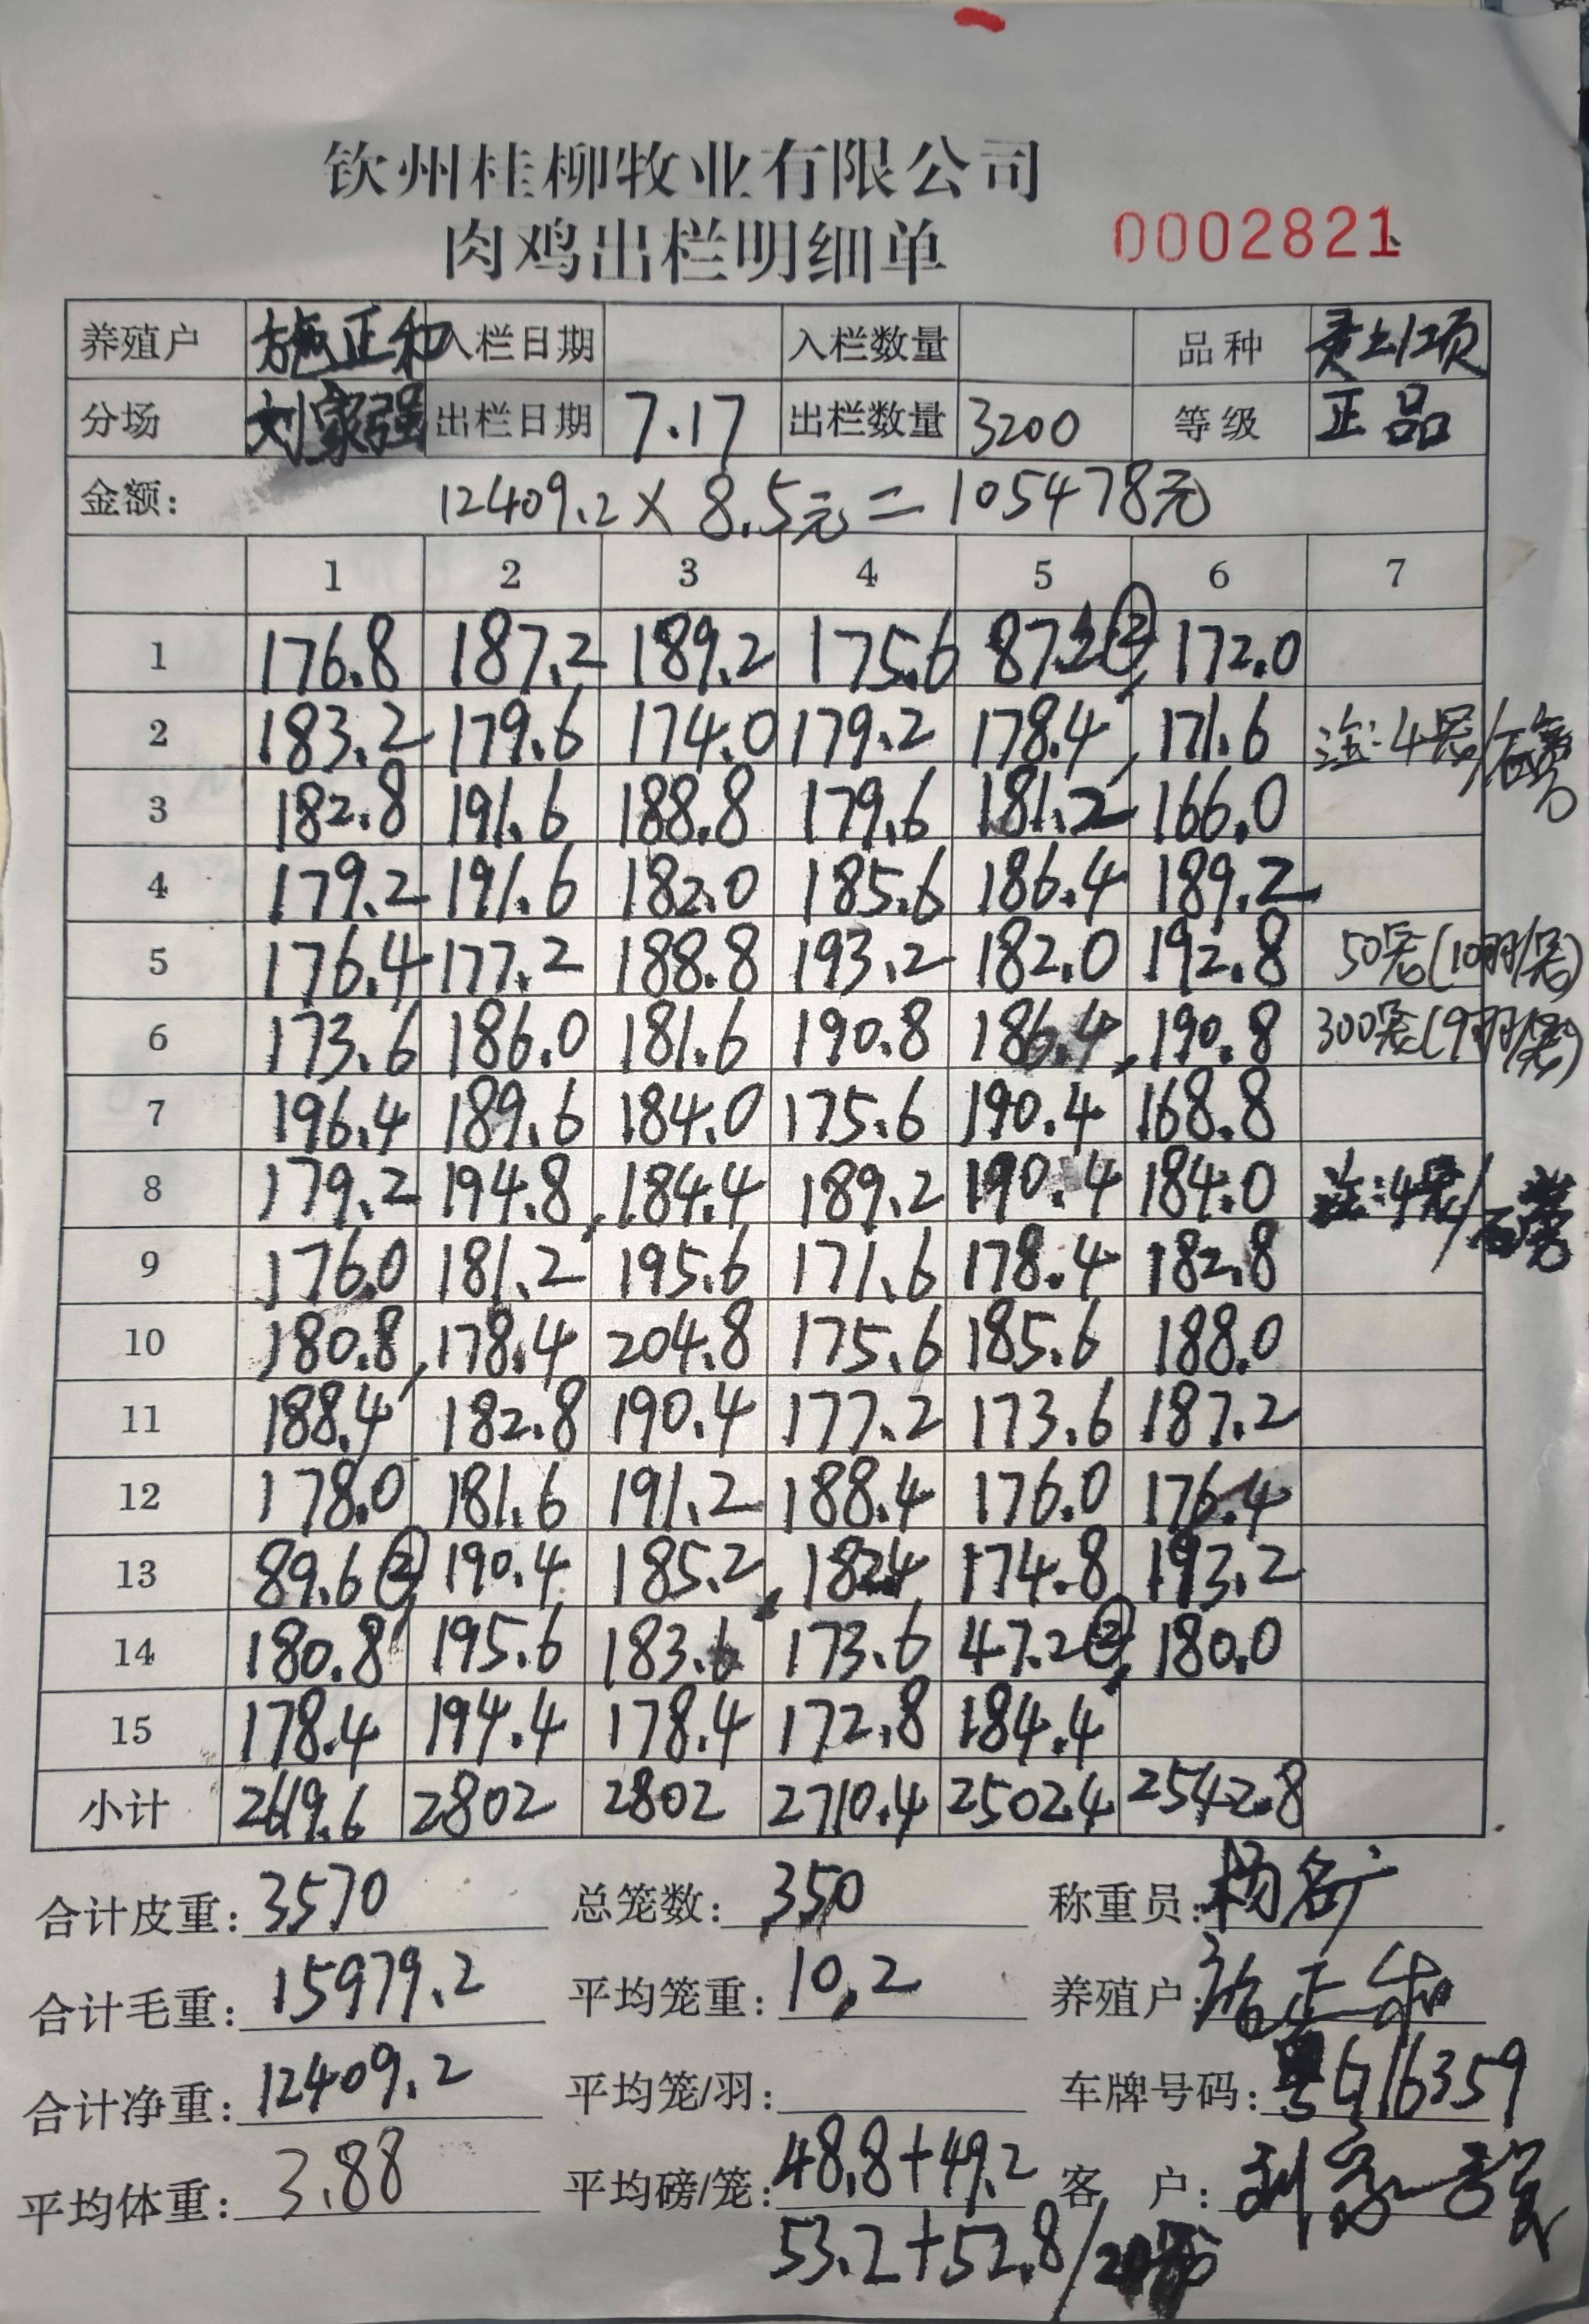 钦州桂柳牧业有限公司
肉鸡出栏明细单 0002821
养殖户 施正和 入栏日期 入栏数量 品种 贵土1项
分场 刘家强 出栏日期 7.17 出栏数量 3200 等级 正品
金额: 12409.2×8.5元=105478元
1 2 3 4 5 6 7
1 176.8 187.2 189.2 175.6 87.2② 172.0
2 183.2 179.6 174.0 179.2 178.4 171.6 注:4笼/磅
3 182.8 191.6 188.8 179.6 181.2 166.0
4 179.2 191.6 182.0 185.6 186.4 189.2
5 176.4 177.2 188.8 193.2 182.0 192.8 50笼(10羽/笼)
6 173.6 186.0 181.6 190.8 186.4 190.8 300笼(9羽/笼)
7 196.4 189.6 184.0 175.6 190.4 168.8
8 179.2 194.8 184.4 189.2 190.4 184.0 注:4笼/磅
9 176.0 181.2 195.6 171.6 178.4 182.8
10 180.8 178.4 204.8 175.6 185.6 188.0
11 188.4 182.8 190.4 177.2 173.6 187.2
12 178.0 181.6 191.2 188.4 176.0 176.4
13 89.6② 190.4 185.2 182.4 174.8 193.2
14 180.8 195.6 183.6 173.6 47.2② 180.0
15 178.4 194.4 178.4 172.8 184.4
小计 2619.6 2802 2802 2710.4 2502.4 2542.8
合计皮重: 3570 总笼数: 350 称重员: 杨名广
合计毛重: 15979.2 平均笼重: 10.2 养殖户: 施正和
合计净重: 12409.2 平均笼/羽: 车牌号码: 粤G16359
平均体重: 3.88 平均磅/笼: 48.8+49.2 客 户: 刘家强
53.2+52.8/20